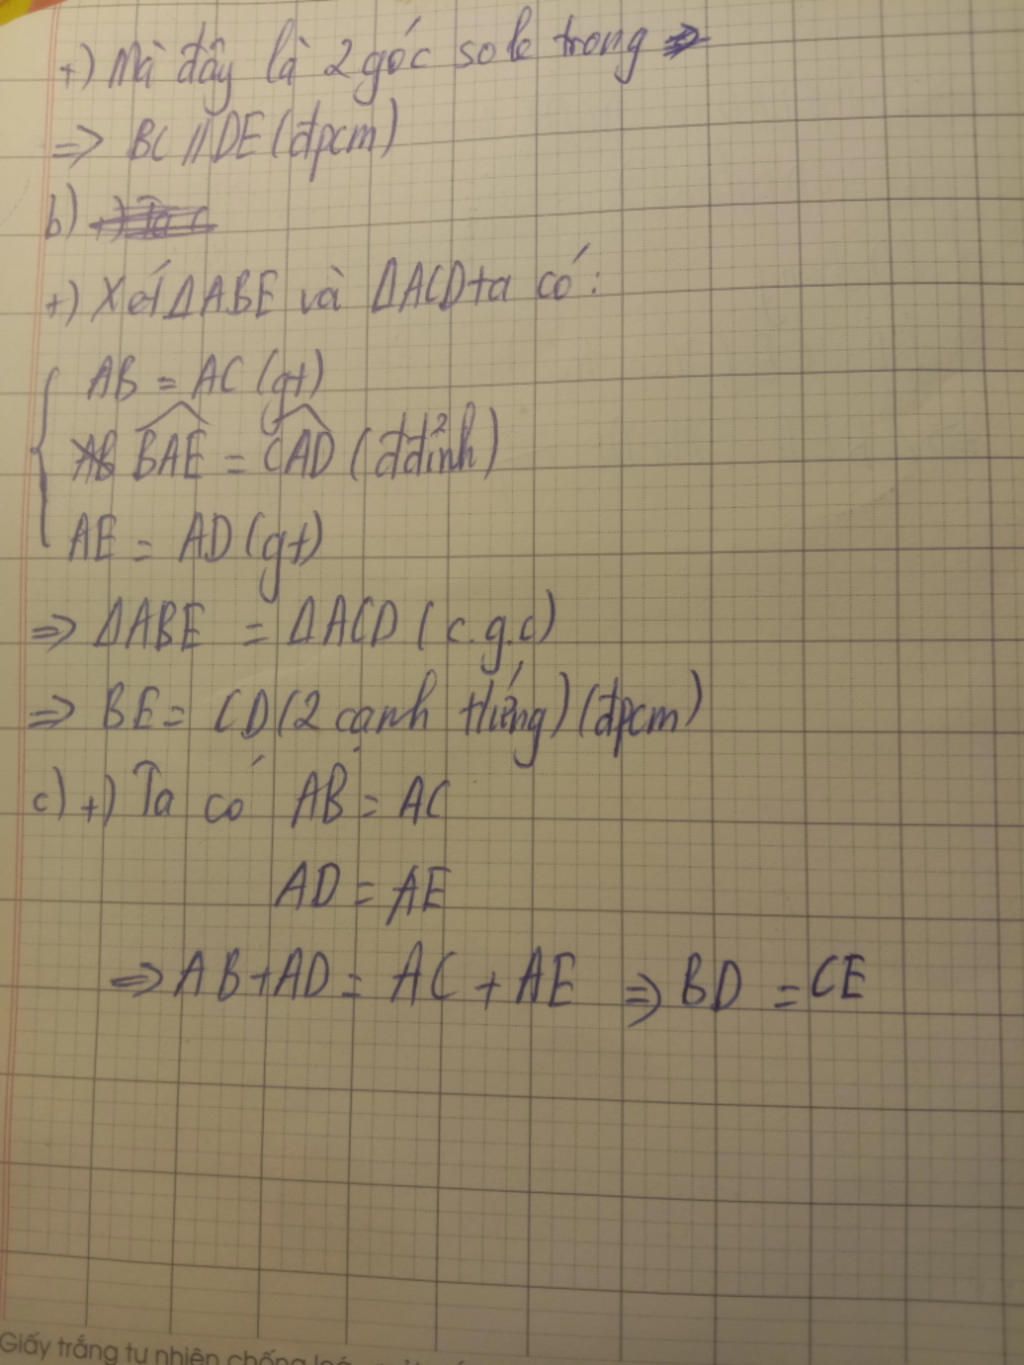 +) Mà đây là 2 góc sole trong
⇒ BC // DE (đpcm)
b)
+) Xét ΔABE và ΔACD ta có:
AB = AC (gt)
BAE = CAD (đđỉnh)
AE = AD (gt)
⇒ ΔABE = ΔACD (c.g.c)
⇒ BE = CD (2 cạnh tứng) (đpcm)
c) +) Ta có AB = AC
AD = AE
⇒ AB + AD = AC + AE ⇒ BD = CE
Giấy trắng tự nhiên chống